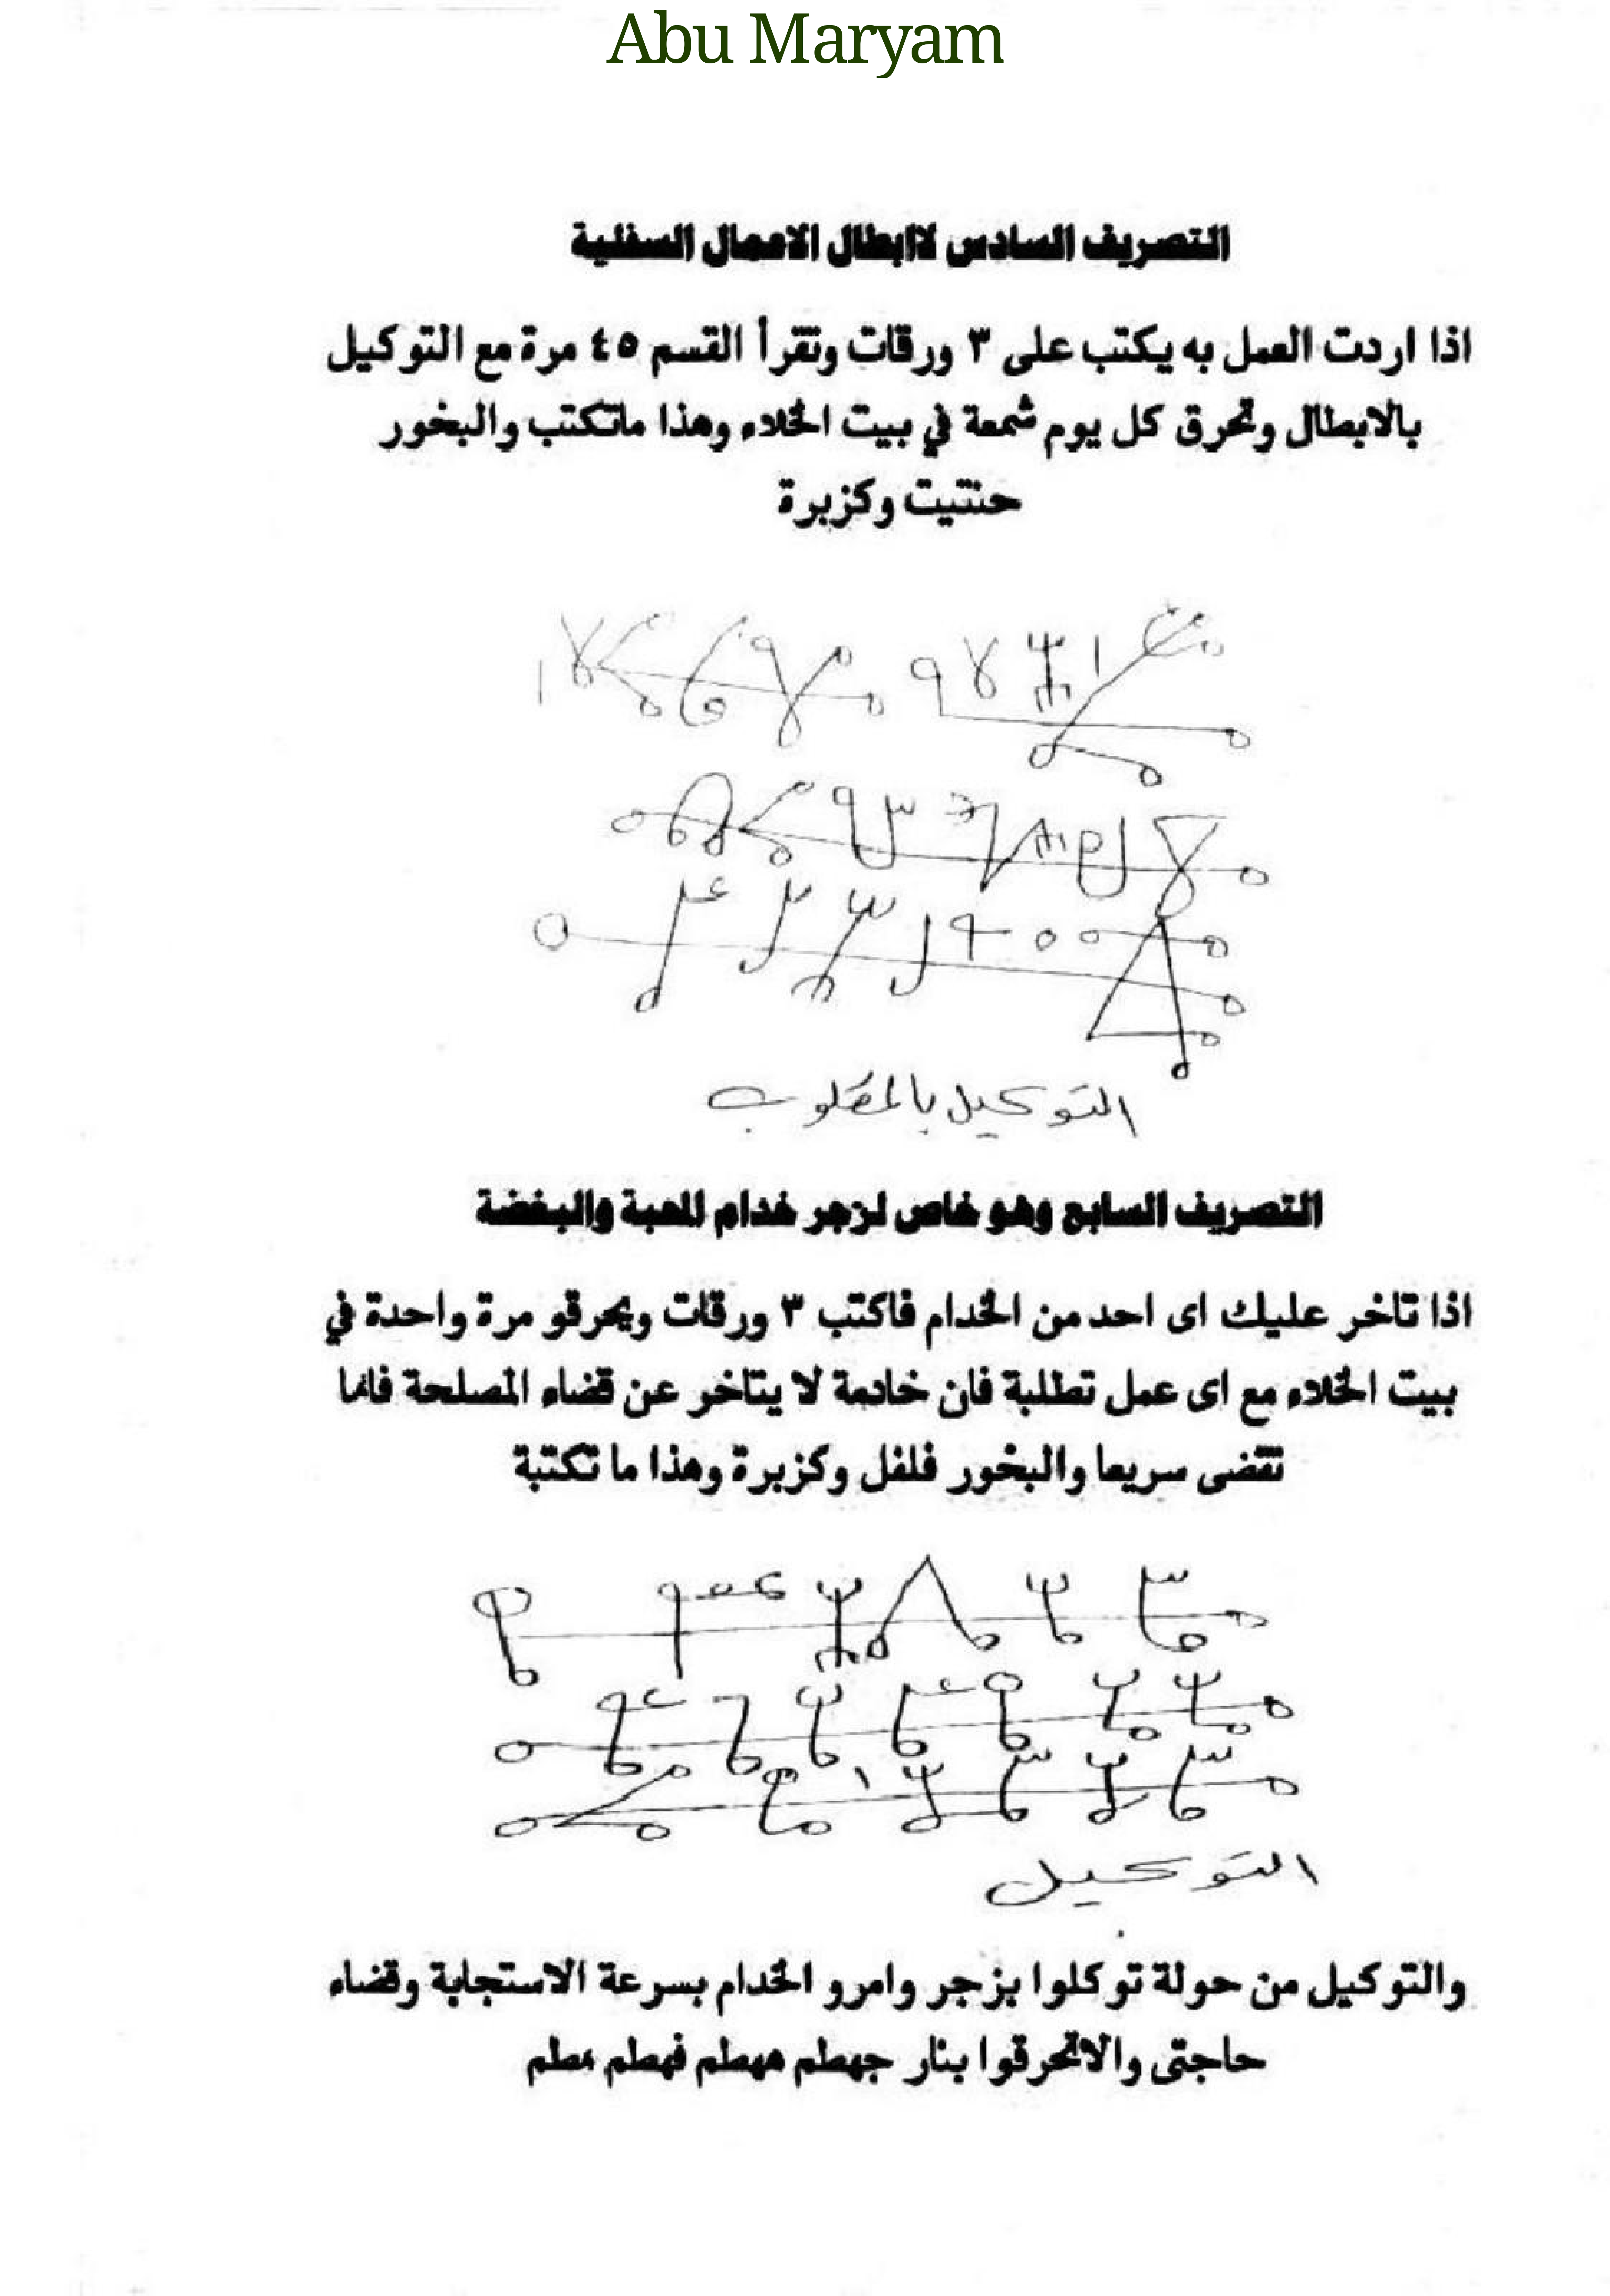 Abu Maryam
التصريف السادس لاابطال الاعمال السفلية
اذا اردت العمل به يكتب على ٣ ورقات وتقرأ القسم ٤٥ مرة مع التوكيل
بالابطال وتحرق كل يوم شمعة في بيت الخلاء وهذا ماتكتب والبخور
حنتيت وكزبرة
التوكيل بالمطلوب
التصريف السابع وهو خاص لزجر خدام المحبة والبغضة
اذا تاخر عليك اى احد من الخدام فاكتب ٣ ورقات ويحرقو مرة واحدة في
بيت الخلاء مع اى عمل تطلبة فان خادمة لا يتاخر عن قضاء المصلحة فانما
تقضى سريعا والبخور فلفل وكزبرة وهذا ما تكتبة
التوكيل
والتوكيل من حولة توكلوا بزجر وامرو الخدام بسرعة الاستجابة وقضاء
حاجتى والاتحرقوا بنار جهطم ههطم فهطم